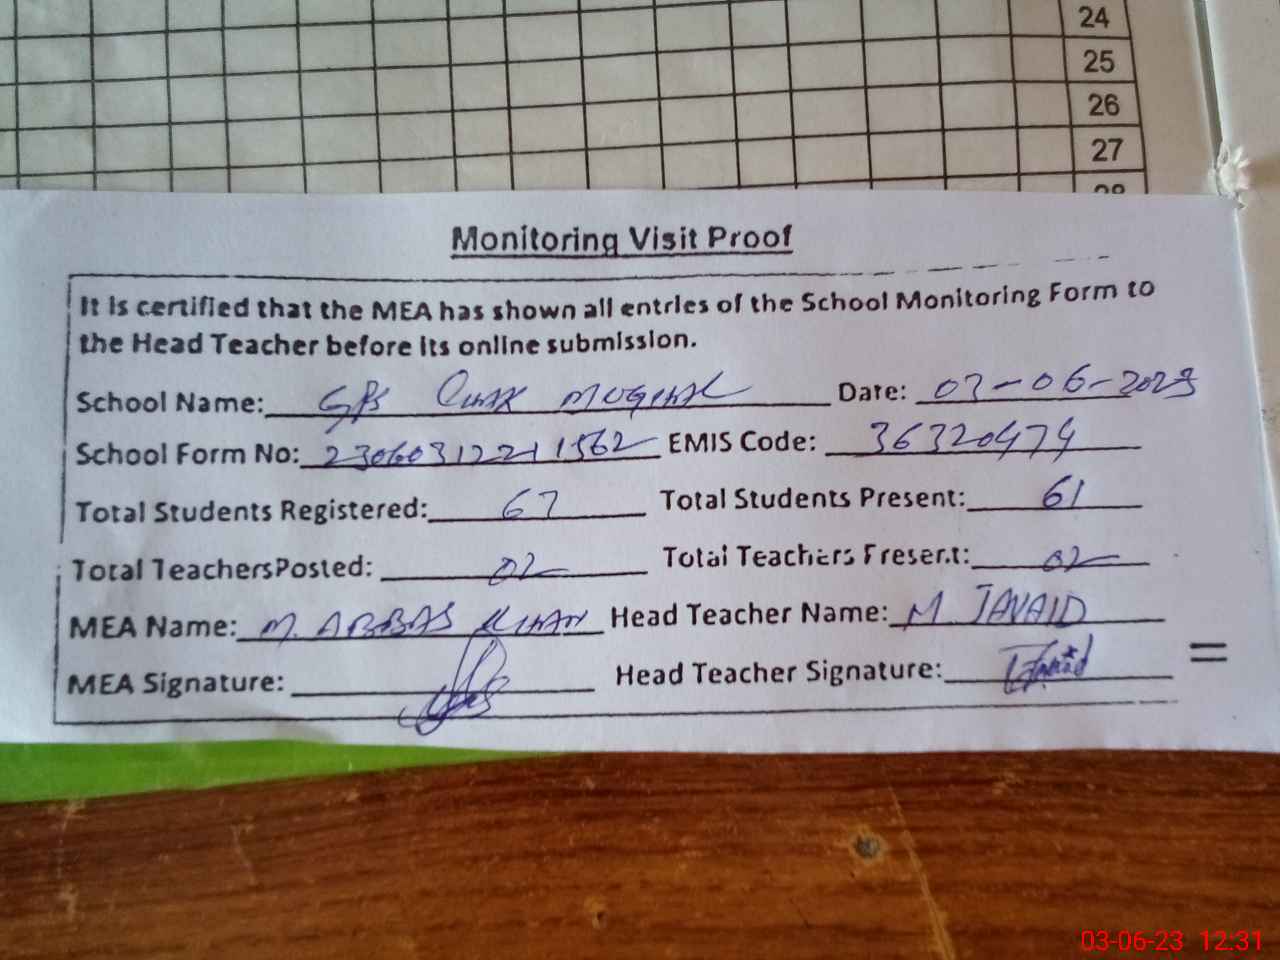 24
25
26
27
28
Monitoring Visit Proof
It is certified that the MEA has shown all entries of the School Monitoring Form to
the Head Teacher before its online submission.
School Name: GPS Chak Mughal Date: 03-06-2023
School Form No: 23060312211562 EMIS Code: 36320474
Total Students Registered: 67 Total Students Present: 61
Total TeachersPosted: 02 Total Teachers Present: 02
MEA Name: M. ABBAS KHAN Head Teacher Name: M JAVAID
MEA Signature: Head Teacher Signature:
=
03-06-23 12:31